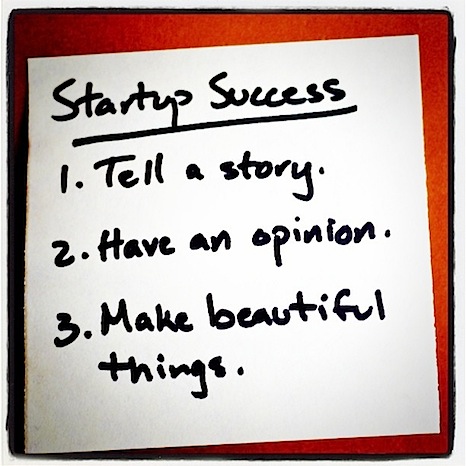 Startup Success
1. Tell a story.
2. Have an opinion.
3. Make beautiful
things.